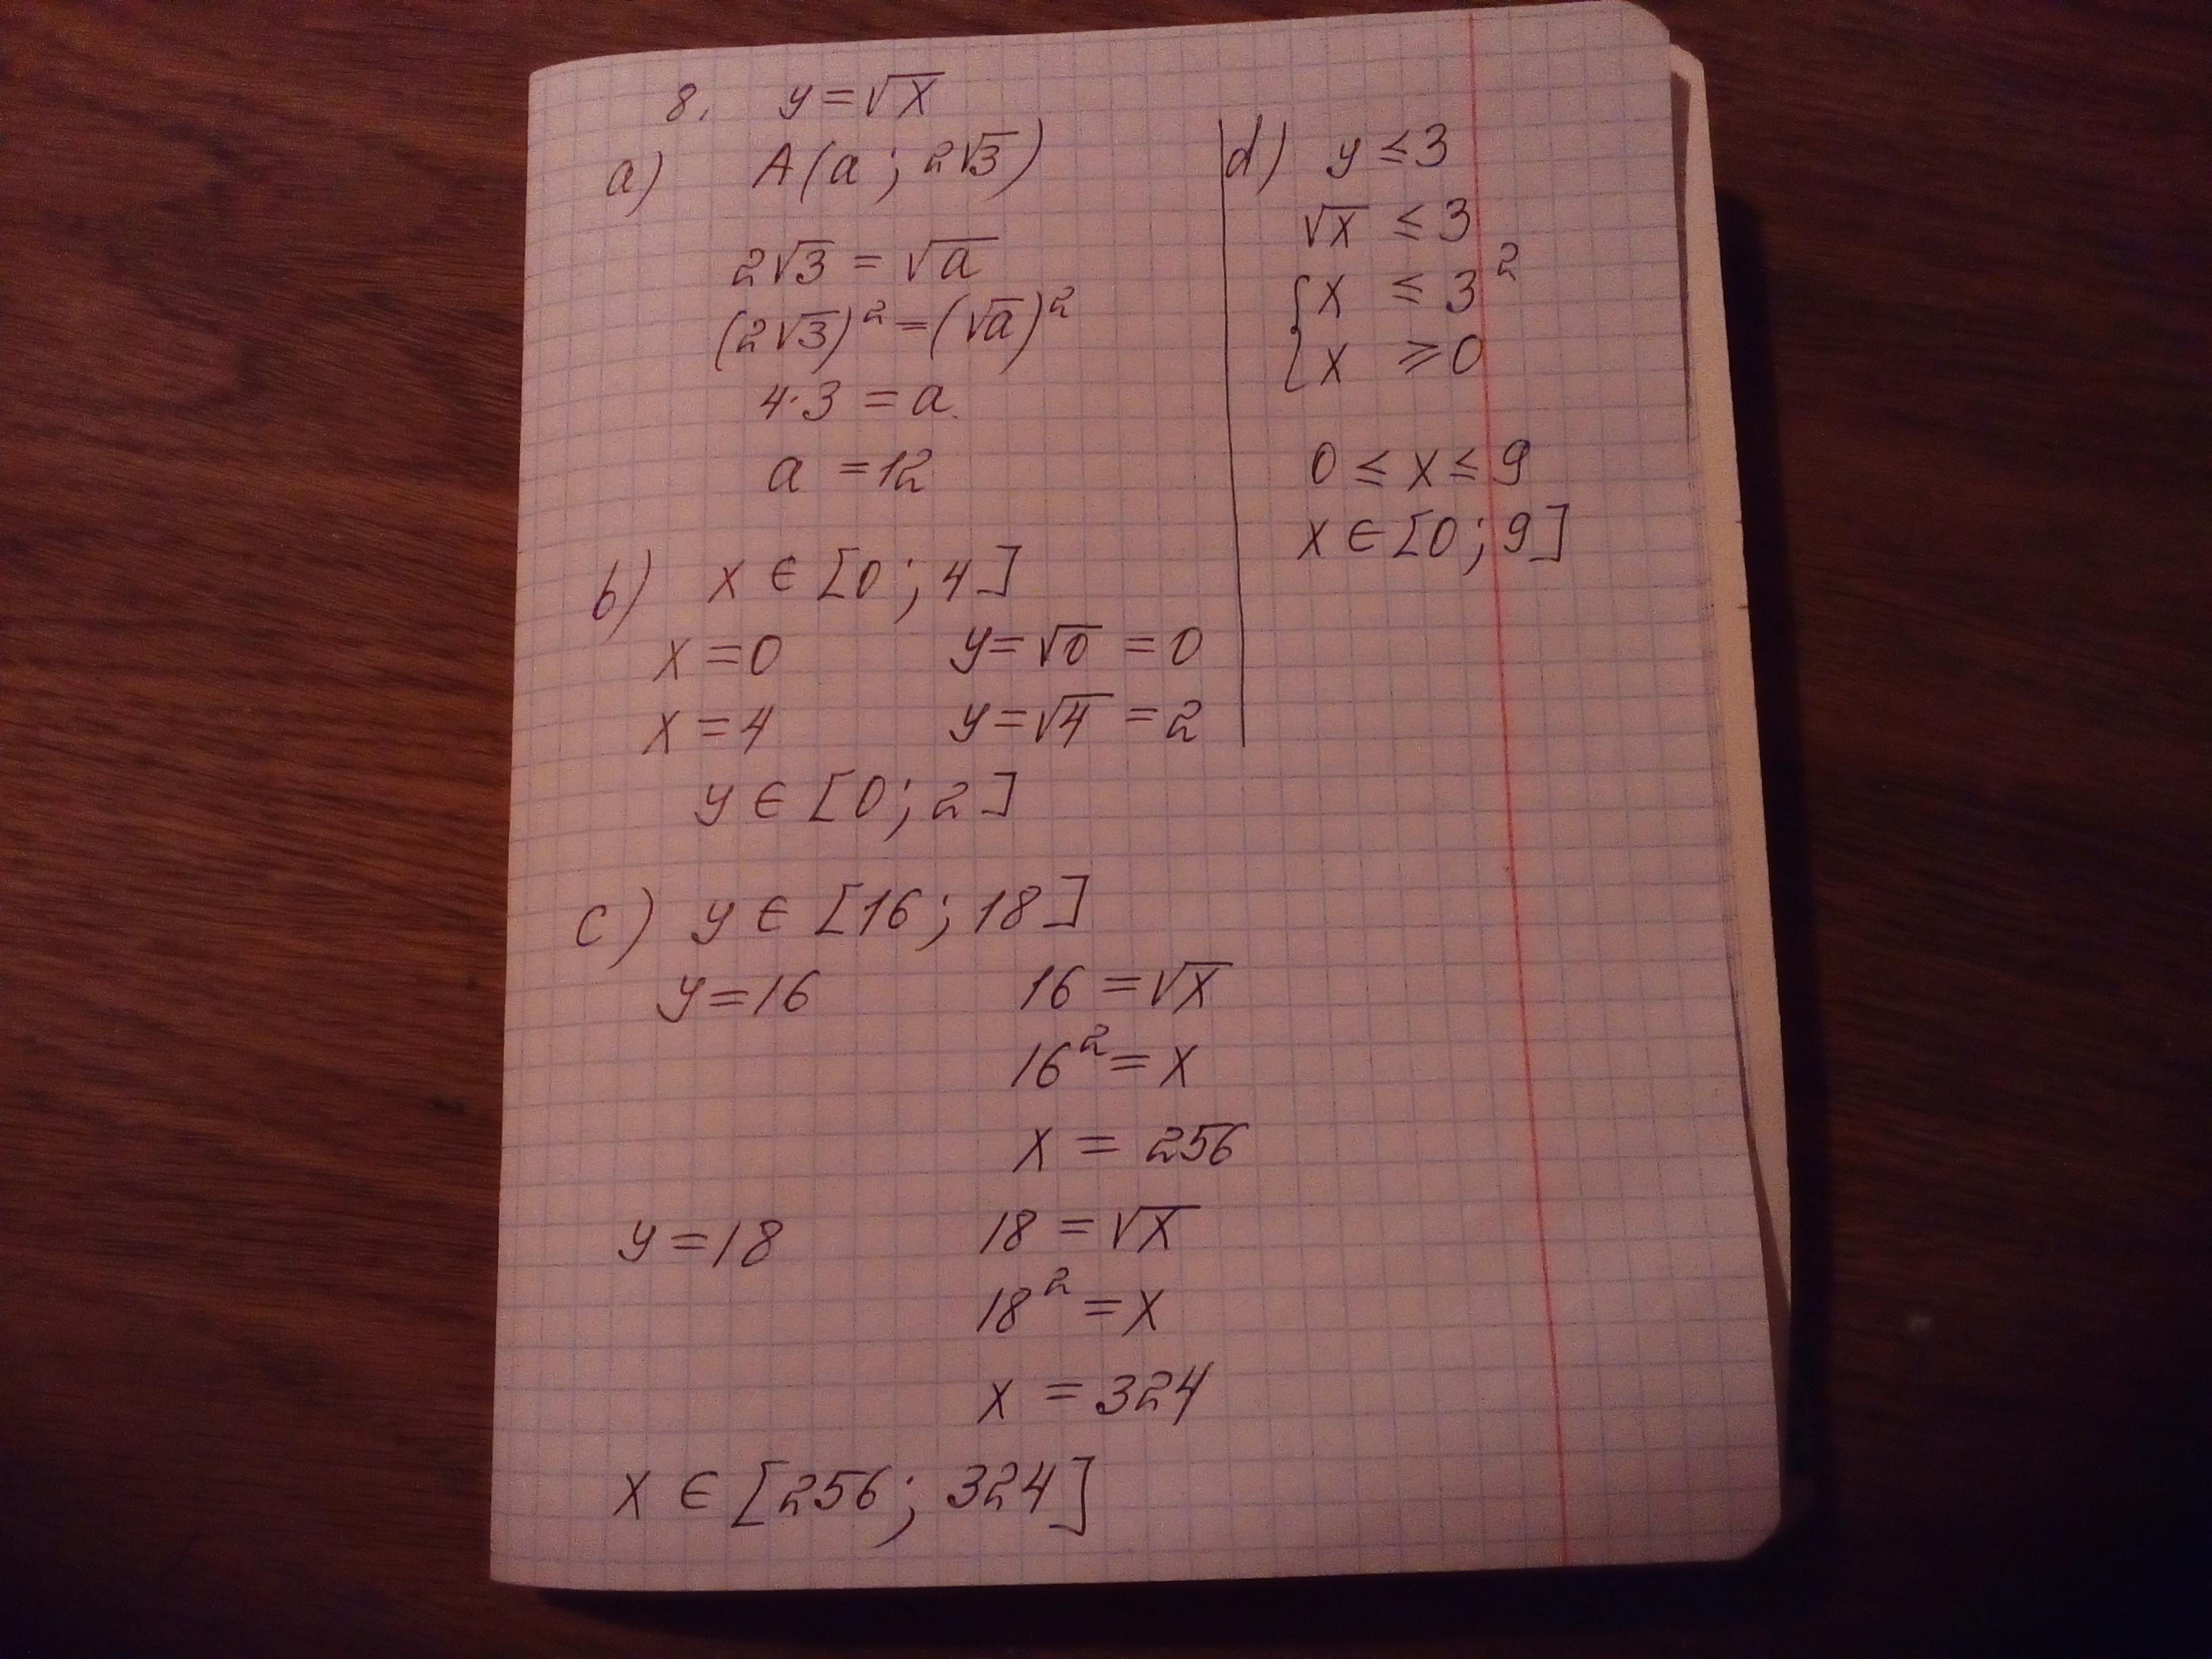 8. y = √x
a) A(a; 2√3)
2√3 = √a
(2√3)² = (√a)²
4·3 = a.
a = 12
b) x ∈ [0; 4]
x = 0 y = √0 = 0
x = 4 y = √4 = 2
y ∈ [0; 2]
c) y ∈ [16; 18]
y = 16 16 = √x
16² = x
x = 256
y = 18 18 = √x
18² = x
x = 324
x ∈ [256; 324]
d) y ≤ 3
√x ≤ 3
{ x ≤ 3²
{ x ≥ 0
0 ≤ x ≤ 9
x ∈ [0; 9]